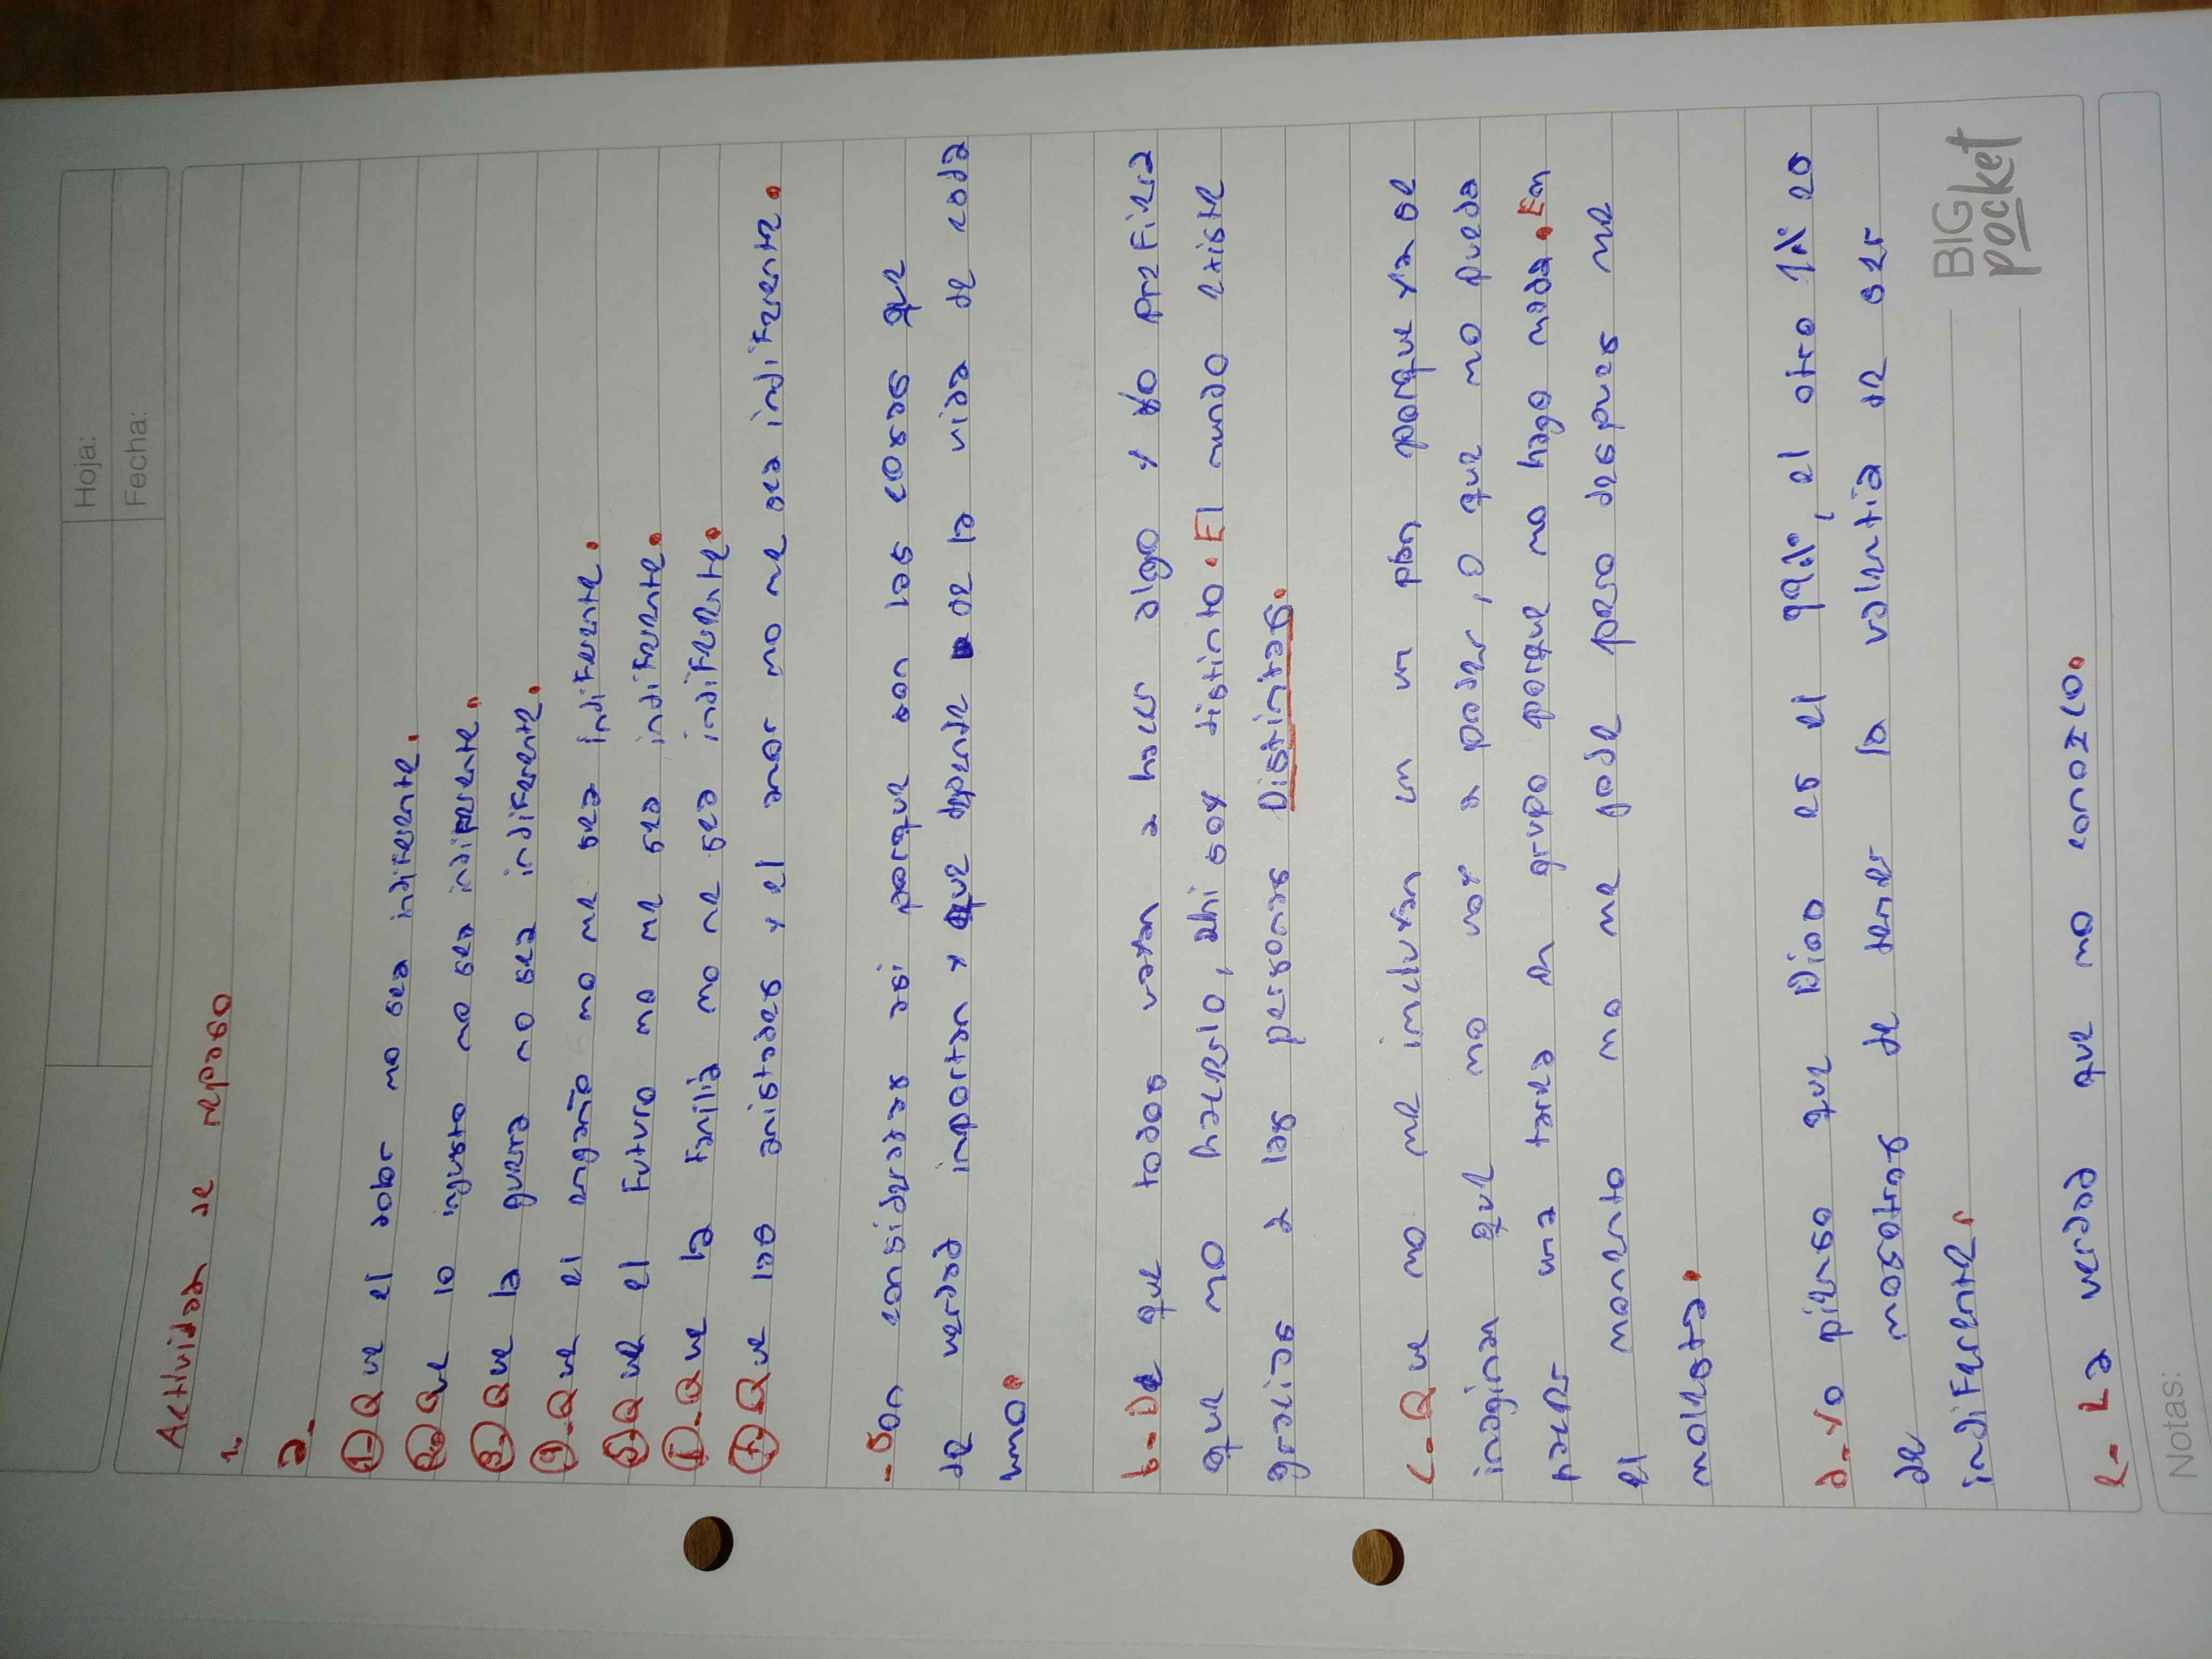 Hoja:
Fecha:
Actividad de repaso
1.
a-
1- Que el dolor no sea indiferente.
2- Que lo injusto no sea indiferente.
3- Que la guerra no sea indiferente.
4- Que el engaño no me sea indiferente.
5- Que el futuro no me sea indiferente.
6- Que la familia no me sea indiferente.
7- Que las amistades y el amor no me sea indiferente.
-Son consideradas asi porque son las cosas que
de verdad importan y que depende de la vida de cada
uno.
b- De que todos vayan a hacer algo y yo prefiera
que no hacerlo, ahi soy distinto. El mundo existe
gracias a las personas Distintas.
c- Que no me incluyan en un plan porque ya se
imaginan que no voy a poder, o que no pueda
hacer una tarea en grupo porque no hago nada. En
el momento no me jode pero despues me
molesta.
d- Yo pienso que Dios es el 99%, el otro 1% es
de nosotros de tener la valentia de ser
indiferente.
e- La verdad que no conozco.
BIG
pocket
Notas: